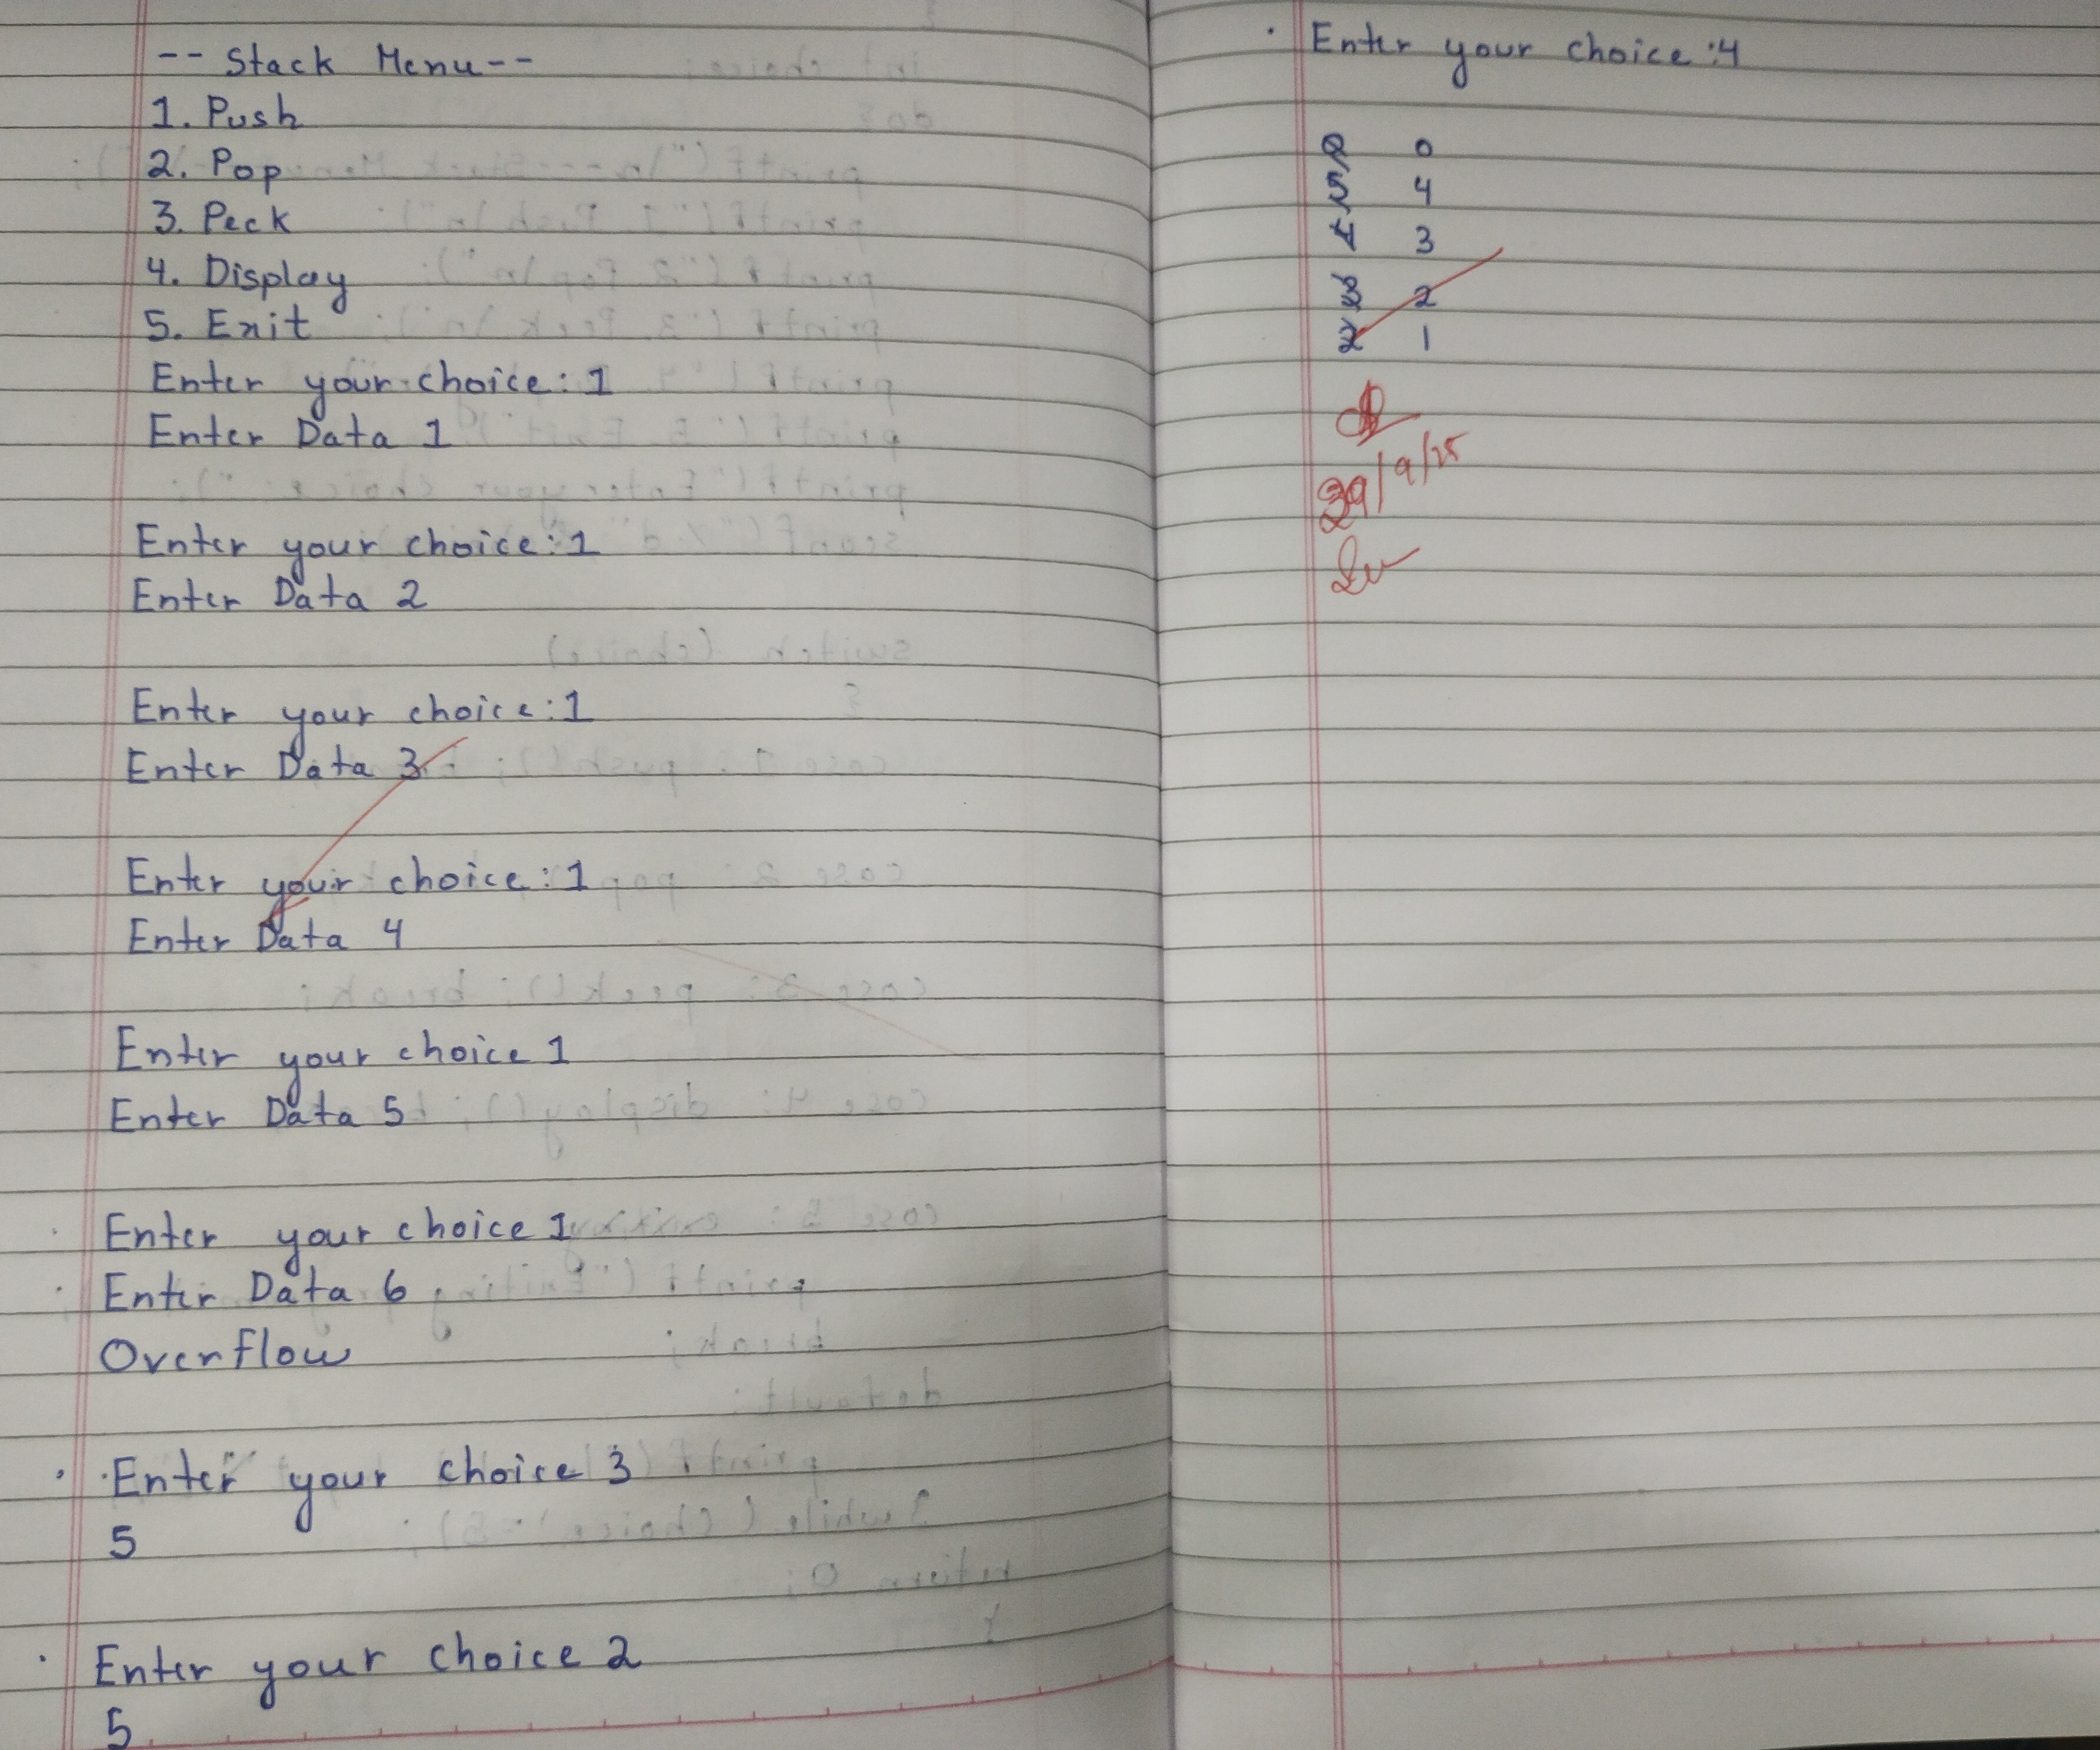 -- Stack Menu--
1. Push
2. Pop
3. Peek
4. Display
5. Exit
Enter your choice: 1
Enter Data 1
Enter your choice: 1
Enter Data 2
Enter your choice: 1
Enter Data 3
Enter your choice: 1
Enter Data 4
Enter your choice 1
Enter Data 5
Enter your choice 1
Enter Data 6
Overflow
Enter your choice 3
5
Enter your choice 2
5
Enter your choice :4
0
5 4
4 3
3 2
2 1
29/9/25